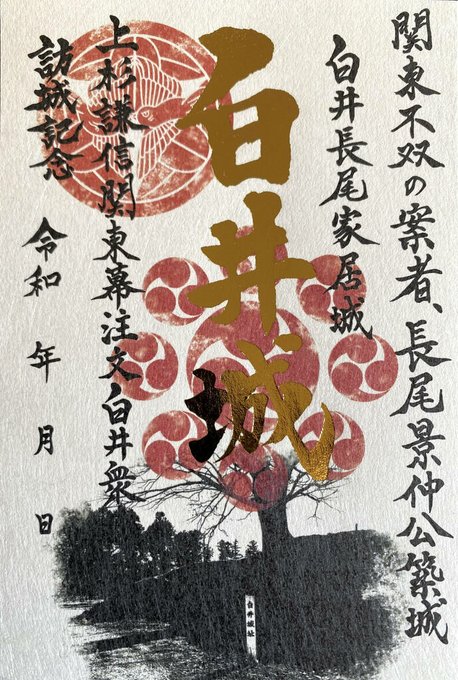 関東不双の案者、長尾景仲公築城
白井長尾家居城
白井城
上杉謙信関東幕注文白井衆
訪城記念
令和 年 月 日
白井城址